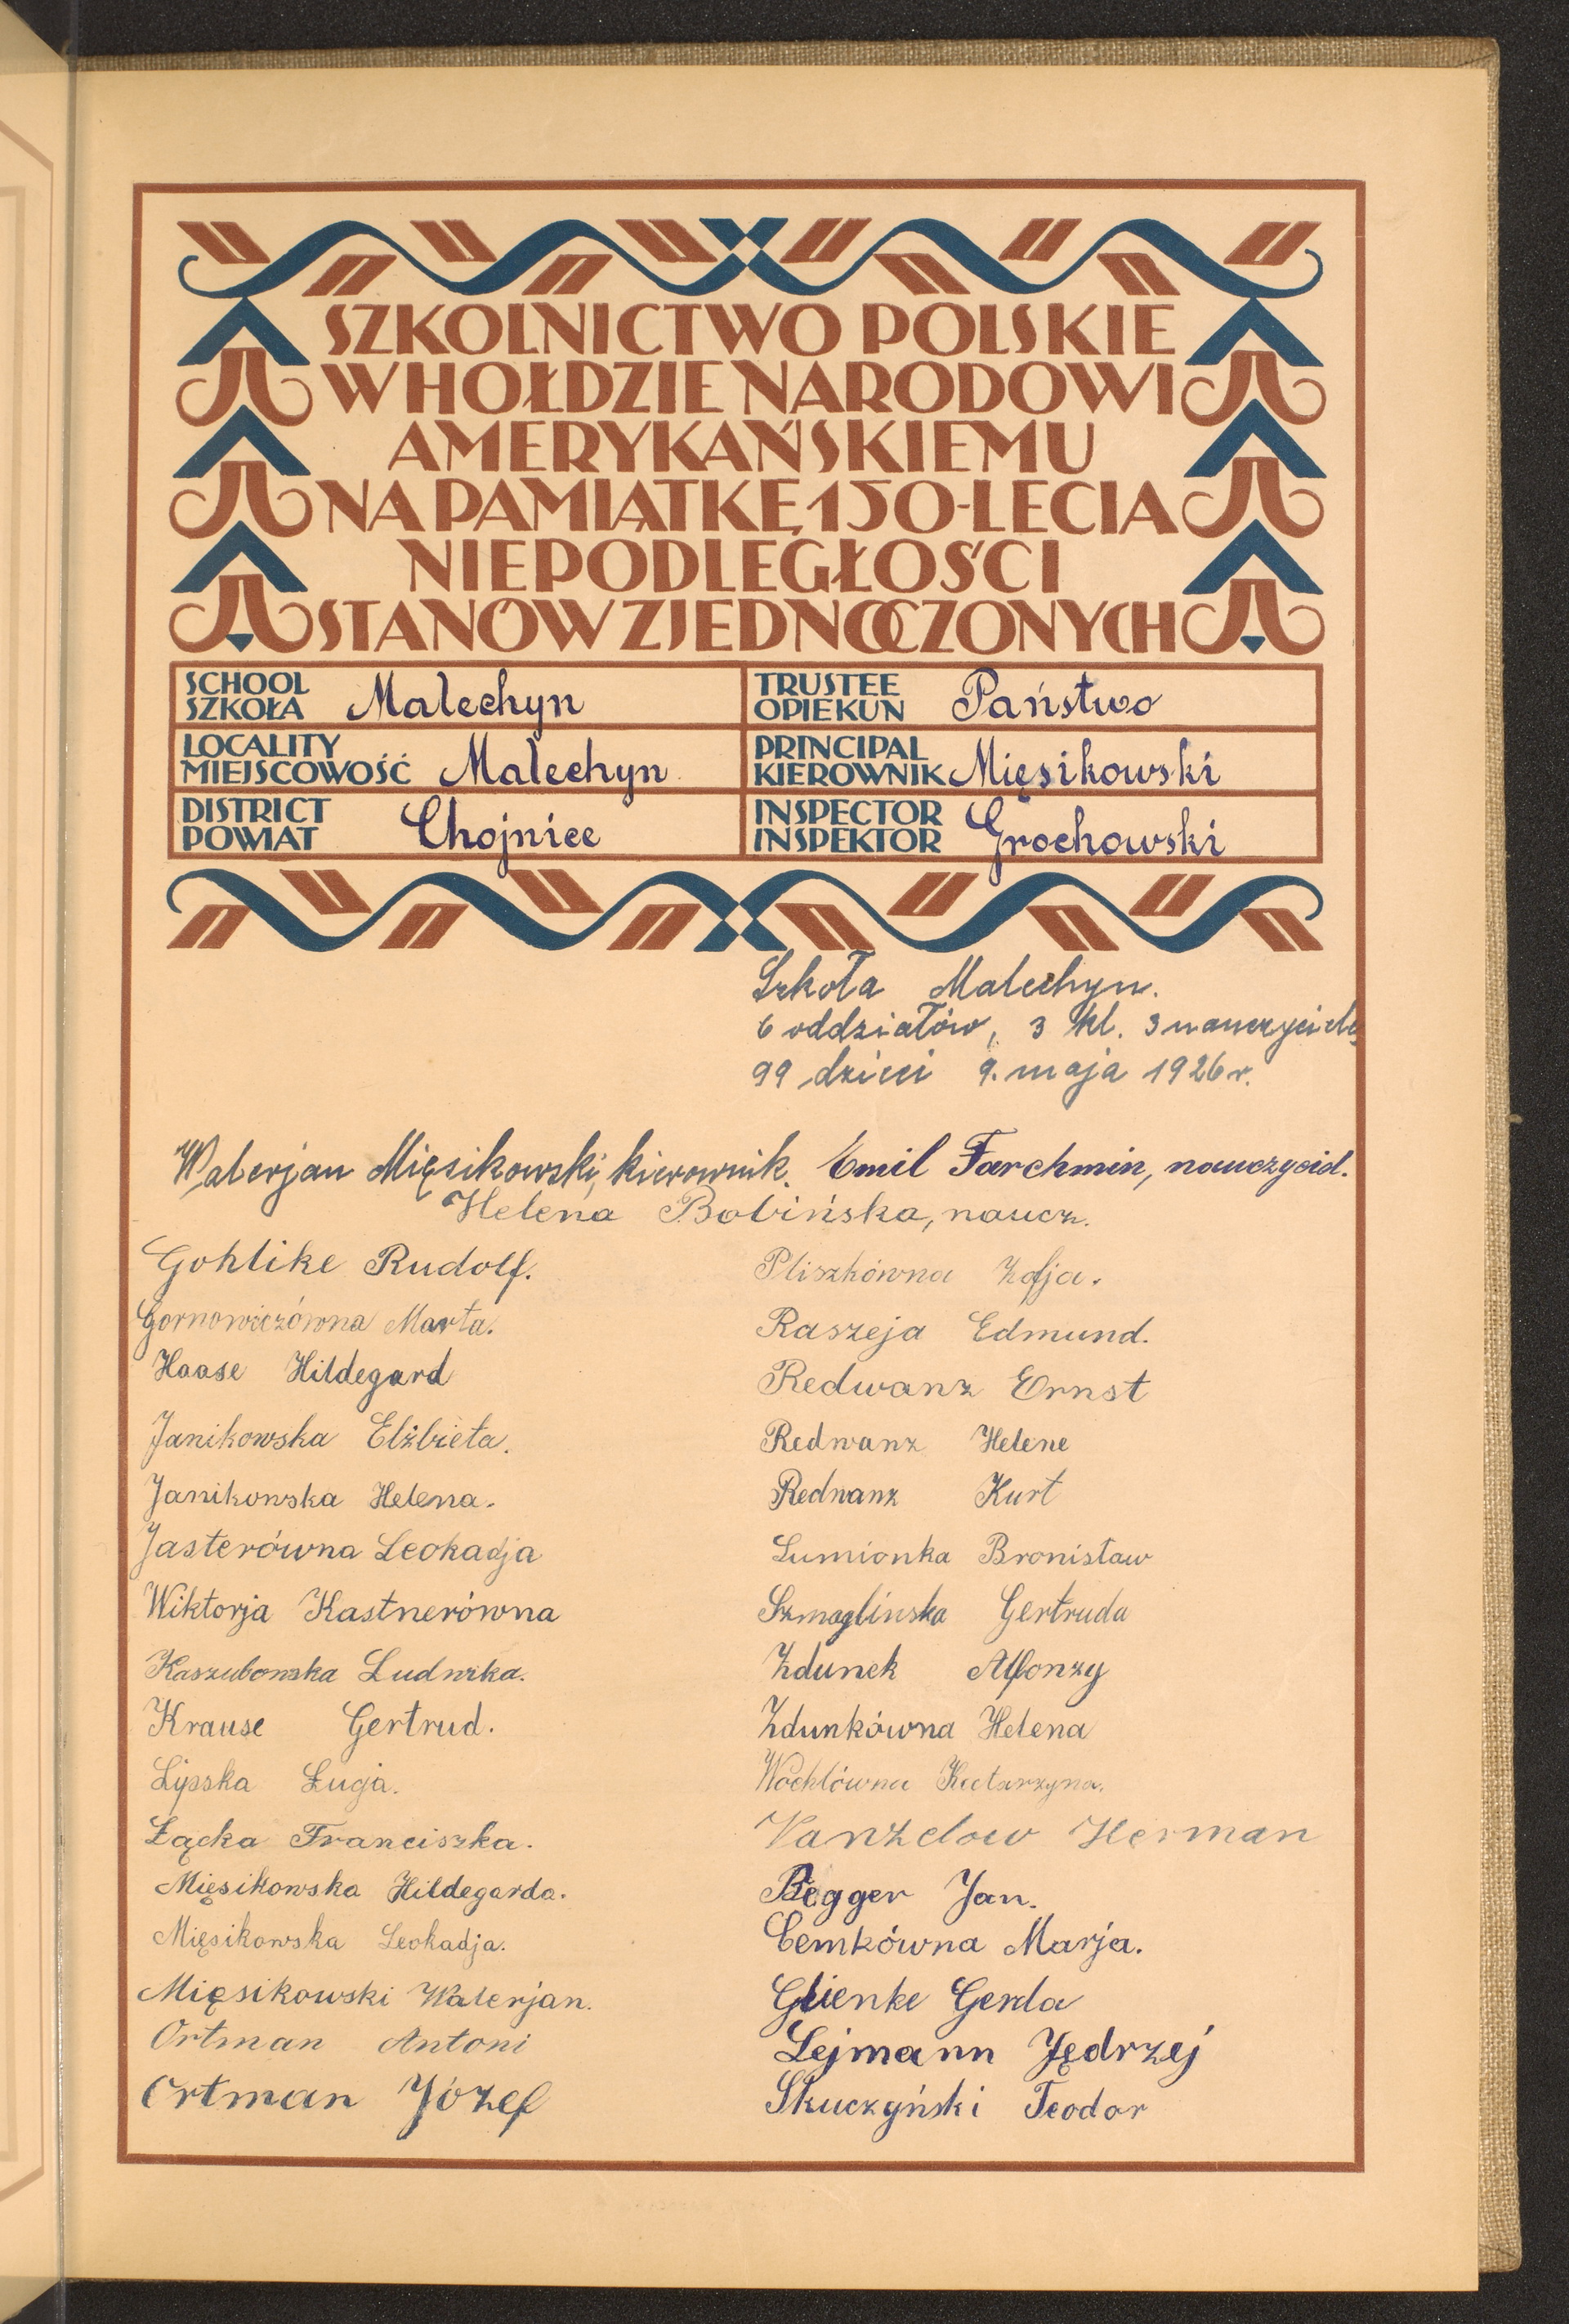 SZKOLNICTWO POLSKIE
W HOŁDZIE NARODOWI
AMERYKAŃSKIEMU
NA PAMIĄTKĘ 150-LECIA
NIEPODLEGŁOŚCI
STANÓW ZJEDNOCZONYCH
SCHOOL
SZKOŁA Malechyn
TRUSTEE
OPIEKUN Państwo
LOCALITY
MIEJSCOWOŚĆ Malechyn
PRINCIPAL
KIEROWNIK Mięsikowski
DISTRICT
POWIAT Chojnice
INSPECTOR
INSPEKTOR Grochowski
Szkoła Malechyn.
6 oddziałów, 3 kl. 3 nauczycieli,
99 dzieci 9. maja 1926 r.
Walerjan Mięsikowski, kierownik. Emil Farchmin, nauczyciel.
Helena Bobińska, naucz.
Gohlike Rudolf.
Gornowiczówna Marta.
Haase Hildegard
Janikowska Elżbieta.
Janikowska Helena.
Jasterówna Leokadja
Wiktorja Kastnerówna
Kaszubowska Ludwika.
Krause Gertrud.
Lipska Łucja.
Łącka Franciszka.
Mięsikowska Hildegarda.
Mięsikowska Leokadja.
Mięsikowski Walerjan.
Ortman Antoni
Ortman Józef
Pliszkówna Zofja.
Raszeja Edmund.
Redwanz Ernst
Redwanz Helene
Redwanz Kurt
Lumionka Bronisław
Szmaglinska Gertruda
Zdunek Alfonzy
Zdunkówna Helena
Wochlówna Katarzyna.
Vanzelow Herman
Begger Jan.
Cemkówna Marja.
Glienke Gerda
Lejmann Jędrzej
Skuczyński Teodor